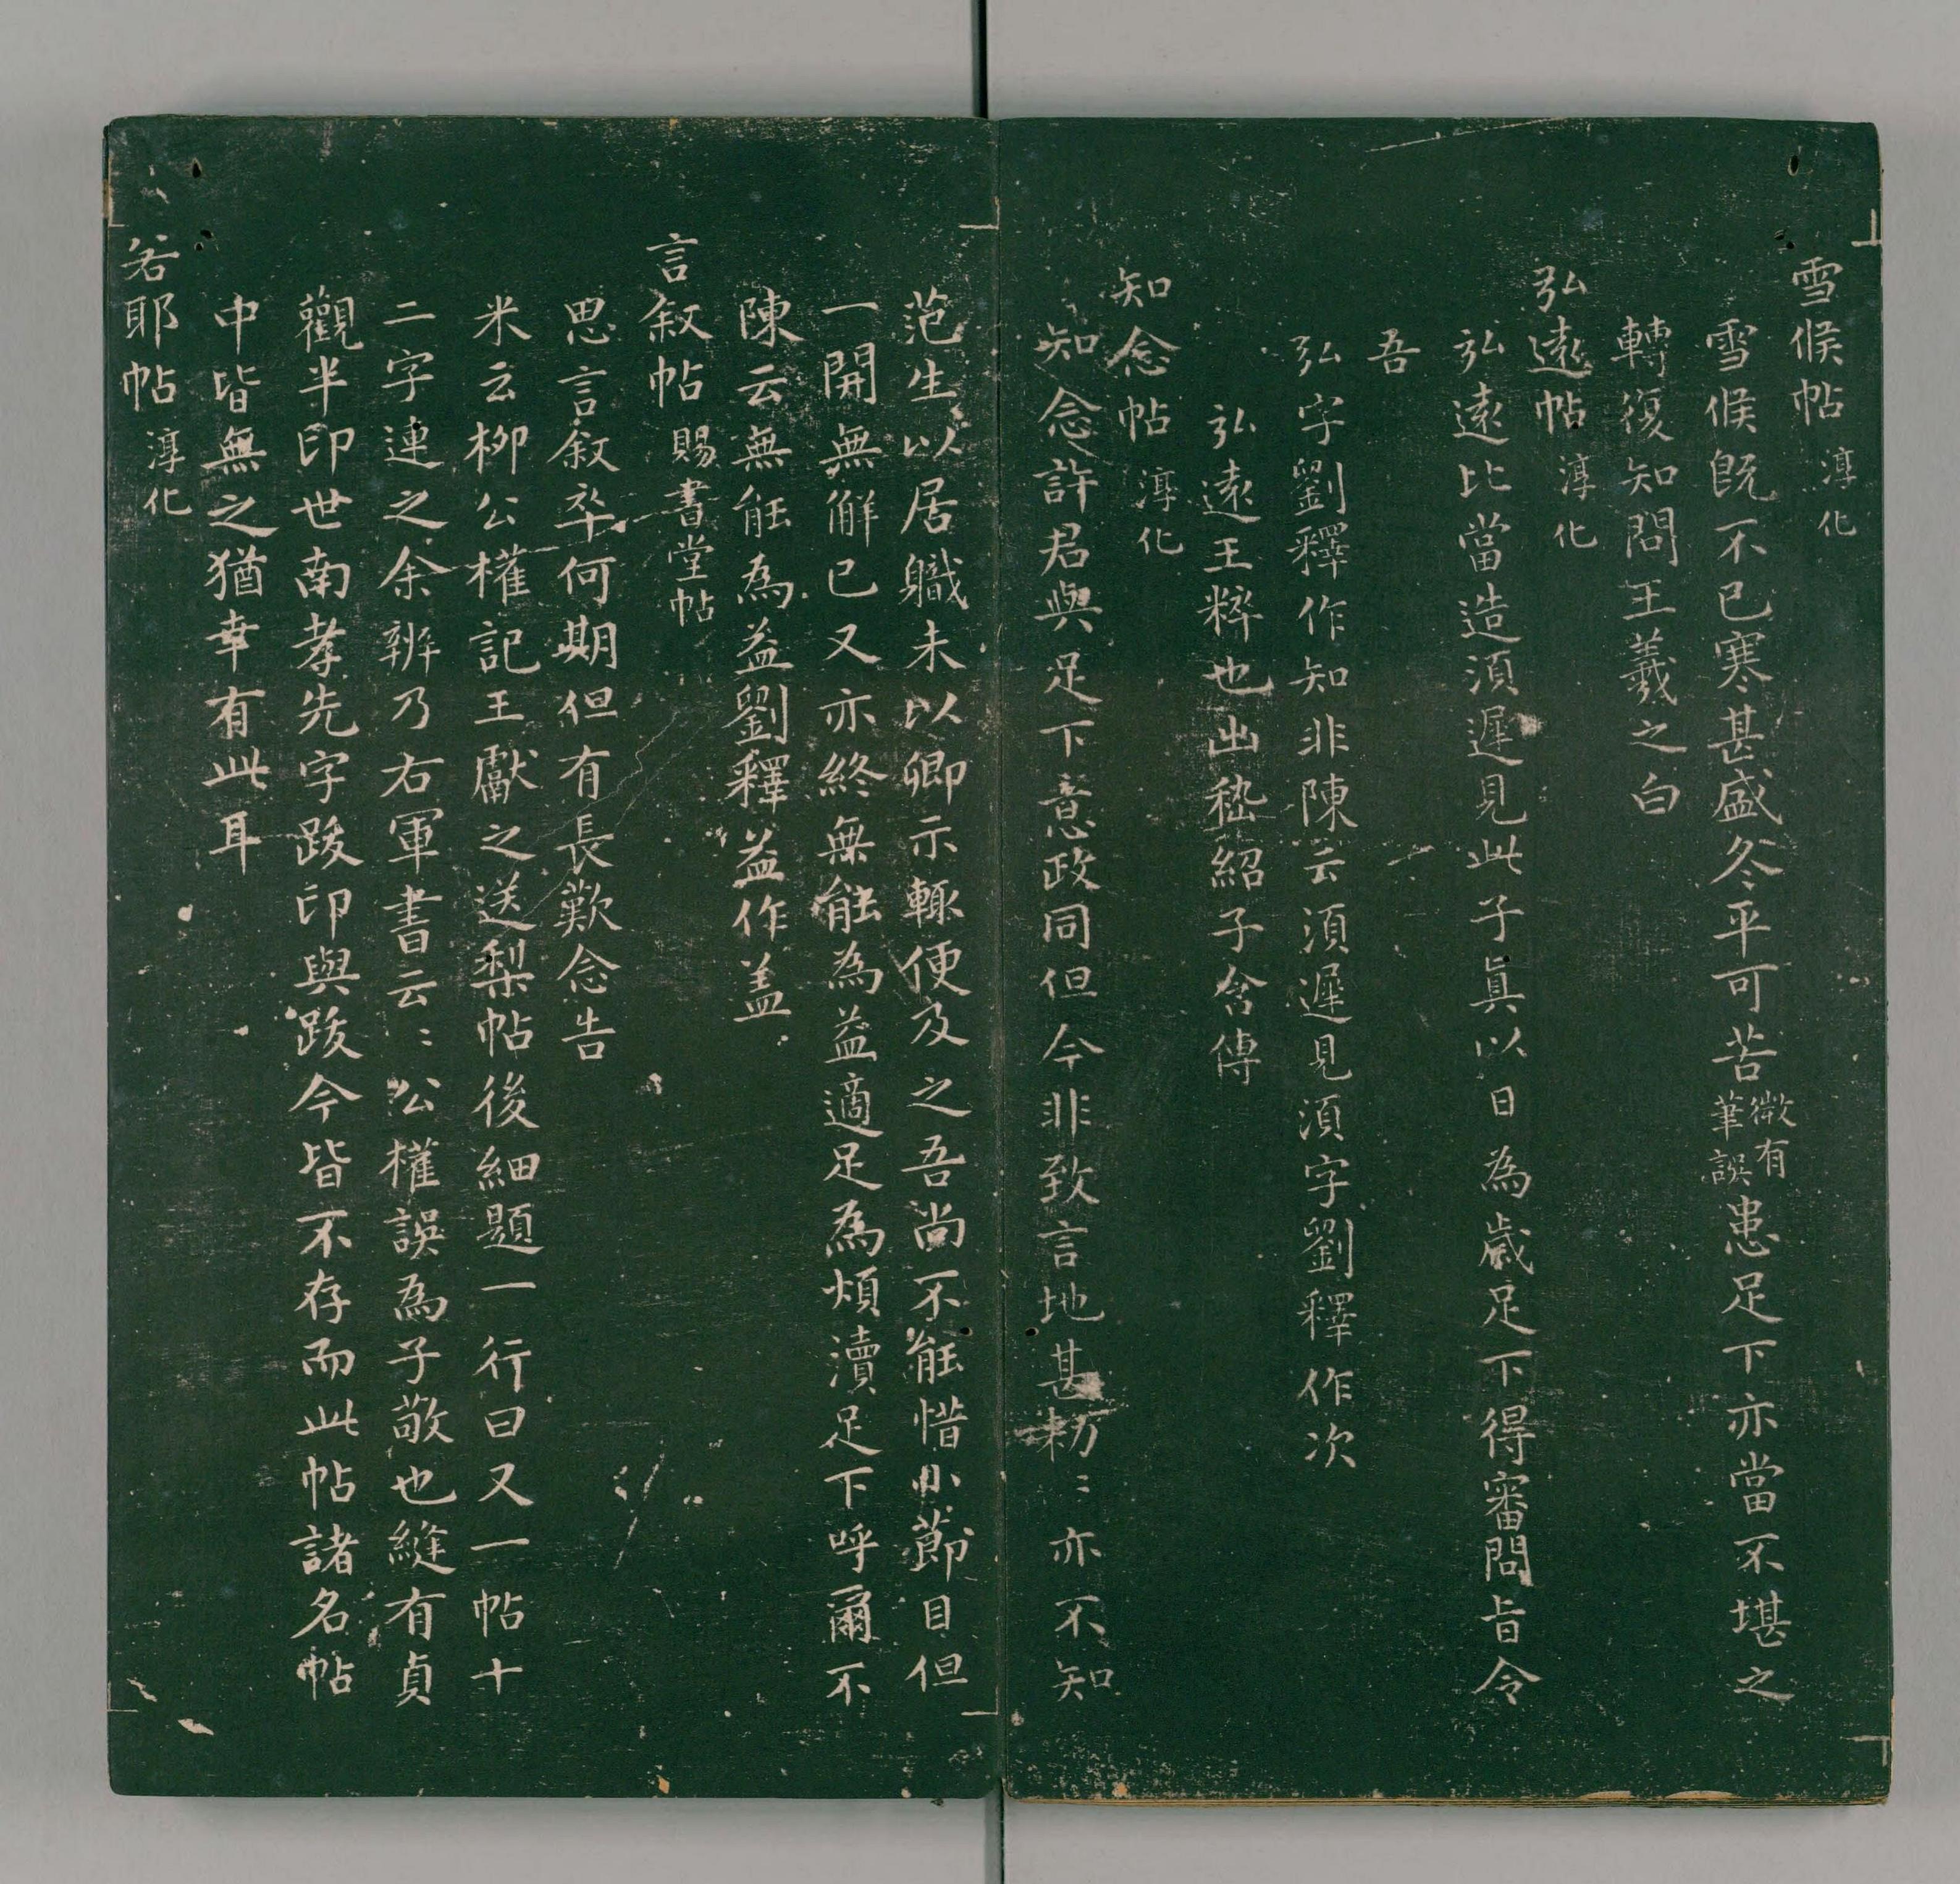 雪候帖 淳化
雪候既不已寒甚盛冬平可苦微有筆誤患足下亦當不堪之
轉復知問王羲之白
弘遠帖 淳化
弘遠比當造須遲見此子真以日為歲足下得審問旨令
吾
弘字劉釋作知非陳云須遲見須字劉釋作次
弘遠王粹也出嵇紹子含傳
知念帖 淳化
知念許君與足下意政同但今非致言地甚勑〻亦不知
范生以居職未以卿示輒便及之吾尚不能惜小節目但
一開無解已又亦終無能為益適足為煩瀆足下呼爾不
陳云無能為益劉釋益作盖
言敘帖 賜書堂帖
思言敘卒何期但有長歎念告
米云栁公權記王獻之送梨帖後細題一行曰又一帖十
二字連之余辨乃右軍書云〻公權誤為子敬也縫有貞
觀半印世南孝先字跋印與跋今皆不存而此帖諸名帖
中皆無之猶幸有此耳
若耶帖 淳化